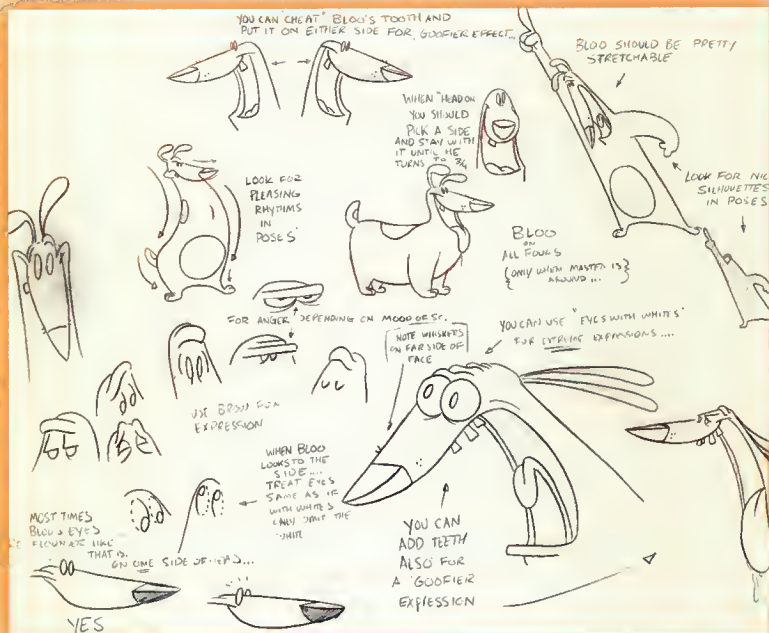 YOU CAN "CHEAT" BLOO'S TOOTH AND
PUT IT ON EITHER SIDE FOR GOOFIER EFFECT...
BLOO SHOULD BE PRETTY
STRETCHABLE
WHEN "HEAD ON"
YOU SHOULD
PICK A SIDE
AND STAY WITH
IT UNTIL HE
TURNS TO 3/4
LOOK FOR
PLEASING
RHYTHMS
IN
POSES
LOOK FOR
SILHOUETTES
IN POSES
BLOO
ON
ALL FOURS
{ONLY WHEN MASTER IS
AROUND...}
FOR ANGER DEPENDING ON MOOD OF
NOTE WHISKERS
ON FAR SIDE OF
FACE
YOU CAN USE "EYES WITH WHITES"
FOR EXTREME EXPRESSIONS....
USE BROW FOR
EXPRESSION
WHEN BLOO
LOOKS TO THE
SIDE....
TREAT EYES
SAME AS IF
WITH WHITES
ONLY THE
MOST TIMES
BLOO'S EYES
LIKE
THAT IS.
ON ONE SIDE OF HEAD...
YOU CAN
ADD TEETH
ALSO FOR
A GOOFIER
EXPRESSION
YES